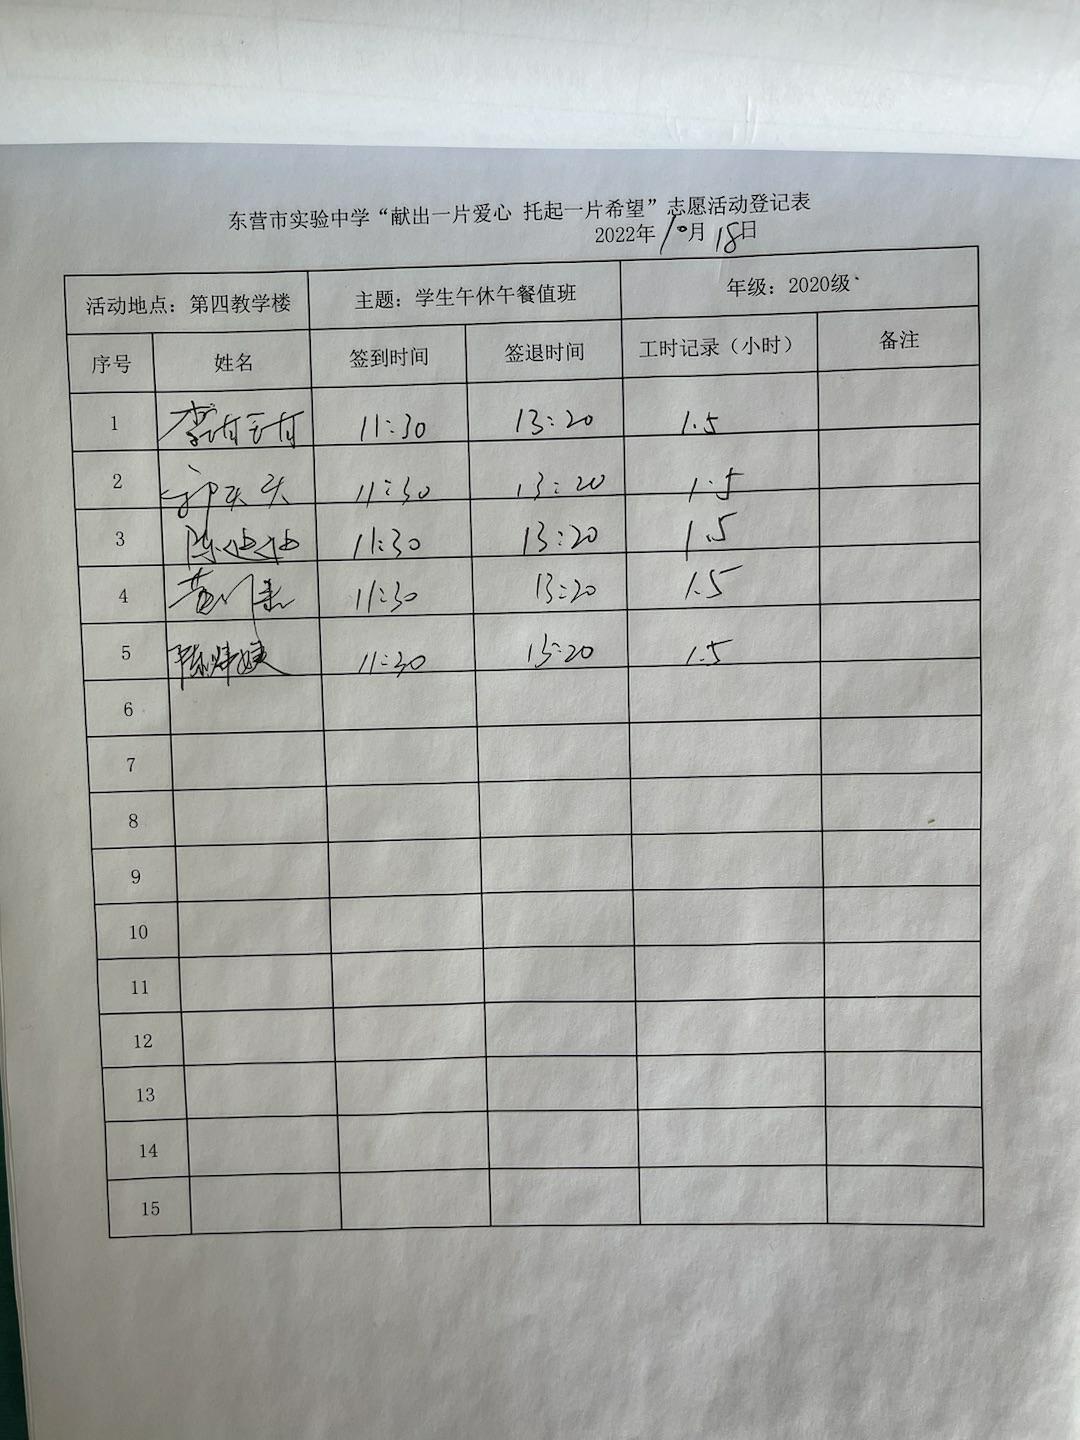 东营市实验中学“献出一片爱心 托起一片希望”志愿活动登记表
2022年10月18日
活动地点：第四教学楼 主题：学生午休午餐值班 年级：2020级
序号 姓名 签到时间 签退时间 工时记录（小时） 备注
1 11:30 13:20 1.5
2 11:30 13:20 1.5
3 陈 11:30 13:20 1.5
4 11:30 13:20 1.5
5 陈 11:30 13:20 1.5
6
7
8
9
10
11
12
13
14
15